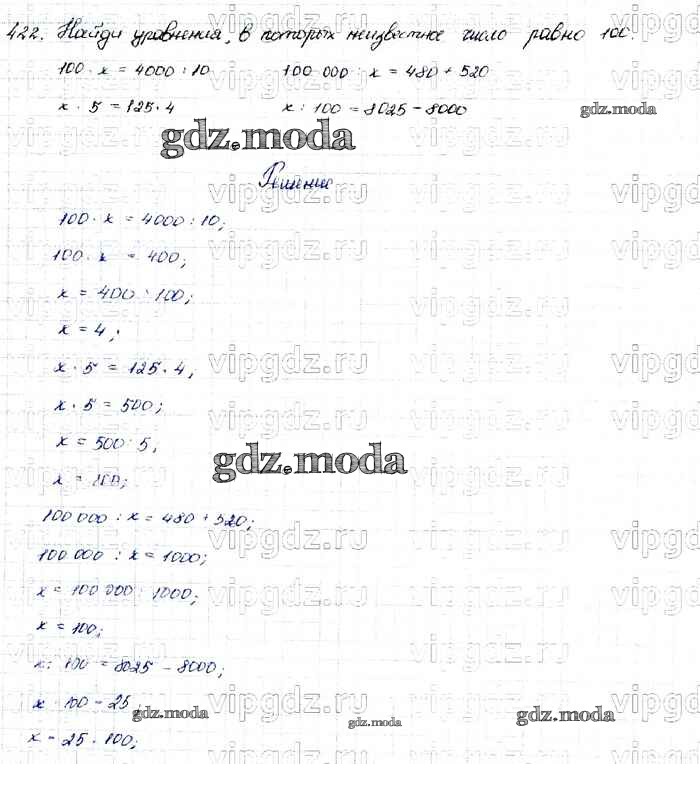 422. Найди уравнения, в которых неизвестное число равно 100.
100 · x = 4000 : 10 100 000 : x = 480 + 520
x · 5 = 125 · 4 x : 100 = 8025 - 8000
gdz.moda
gdz.moda
Решение
100 · x = 4000 : 10;
100 · x = 400;
x = 400 : 100;
x = 4;
x · 5 = 125 · 4;
x · 5 = 500;
x = 500 : 5;
gdz.moda
x = 100;
100 000 : x = 480 + 520;
100 000 : x = 1000;
x = 100 000 : 1000;
x = 100;
x : 100 = 8025 - 8000;
x : 100 = 25;
gdz.moda gdz.moda gdz.moda
x = 25 · 100;
vipgdz.ru